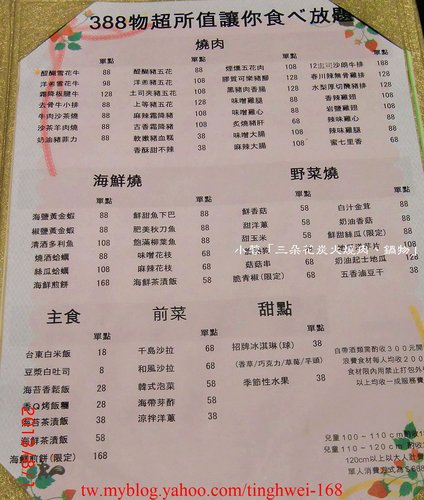 388物超所值讓你食べ放題
燒肉
單點 單點 單點 單點
醍醐雪花牛 88
洋蔥雪花牛 98
霜降板腱牛 108
去骨牛小排 88
牛肉沙茶燒 88
沙茶羊肉燒 88
奶油豬菲力 88
醍醐豬五花 88
洋蔥豬五花 88
土司夾豬五花
上等豬五花
麻辣霜降豬
古香霜降豬
軟嫩豬血糕 38
香酥甜不辣 38
煙燻五花肉 108
膠質可樂豬腳 128
黑豬肉香腸 128
味噌雞腿 88
味噌雞心
炙燒豬肝 68
味噌大腸 108
麻辣大腸 108
12盎司沙朗牛排 388
春川辣無骨雞排 128
水梨厚切醃豬排 108
香辣雞翅
岩鹽雞翅 108
辣味雞心 88
辣味雞腿 88
蜜七里香 68
海鮮燒
單點 單點
海鹽黃金蝦 88
椒鹽黃金蝦 88
清酒多利魚 108
燒酒蛤蠣 68
絲瓜蛤蠣 128
海鮮煎餅 168
鮮甜魚下巴 88
肥美秋刀魚 88
飽滿柳葉魚 88
味噌花枝 88
麻辣花枝 68
海鮮茶漬飯 58
野菜燒
單點 單點
鮮香菇 58
甜洋蔥 58
甜玉米 58
脆青椒(限定) 68
白汁金茸 88
奶油香菇 88
鮮甜絲瓜(限定) 88
奶油起士地瓜 128
五香滷豆干 38
小葳「三朵花炭火燒肉‧鍋物」
主食
單點
台東白米飯 18
豆漿白吐司 8
海苔香鬆飯 28
香Q烤飯糰 28
梅苔茶漬飯 38
海鮮茶漬飯 58
海鮮煎餅(限定) 168
前菜
單點
千島沙拉 68
和風沙拉 68
韓式泡菜 58
海帶芽酥 58
涼拌洋蔥 38
甜點
單點
招牌冰淇淋(球) 38
(香草/巧克力/草莓/芋頭)
季節性水果 38
自帶酒類需酌收300元開
浪費食材每人均收200
食材限內用禁止打包外
以上均收一成服務費
兒童100~110cm酌收1
兒童110~120cm
120cm以上以大人計費
單人消費方式為$688
tw.myblog.yahoo.com/tinghwei-168